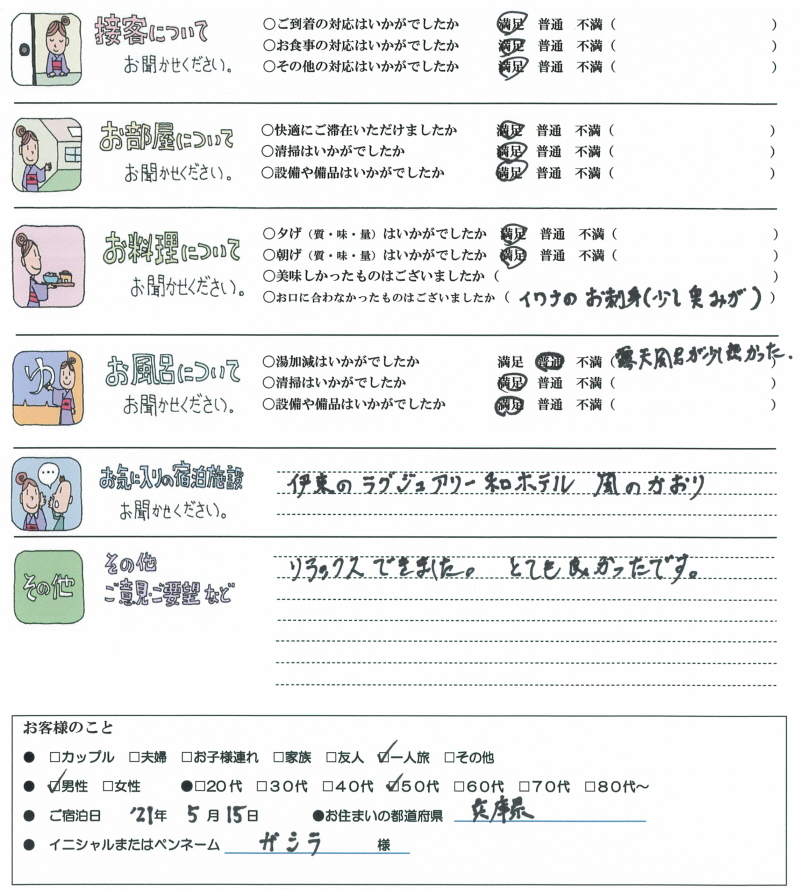 接客について
お聞かせください。
○ご到着の対応はいかがでしたか 満足 普通 不満（ ）
○お食事の対応はいかがでしたか 満足 普通 不満（ ）
○その他の対応はいかがでしたか 満足 普通 不満（ ）
お部屋について
お聞かせください。
○快適にご滞在いただけましたか 満足 普通 不満（ ）
○清掃はいかがでしたか 満足 普通 不満（ ）
○設備や備品はいかがでしたか 満足 普通 不満（ ）
お料理について
お聞かせください。
○夕げ（質・味・量）はいかがでしたか 満足 普通 不満（ ）
○朝げ（質・味・量）はいかがでしたか 満足 普通 不満（ ）
○美味しかったものはございましたか（ ）
○お口に合わなかったものはございましたか（ イワナのお刺身（少し臭みが））
ゆ
お風呂について
お聞かせください。
○湯加減はいかがでしたか 満足 普通 不満（露天風呂が少し熱かった.）
○清掃はいかがでしたか 満足 普通 不満（ ）
○設備や備品はいかがでしたか 満足 普通 不満（ ）
...
お気に入りの宿泊施設
お聞かせください。
伊東のラグジュアリー和ホテル 風のかおり
その他
その他
ご意見・ご要望など
リラックスできました。 とても良かったです。
お客様のこと
● □カップル □夫婦 □お子様連れ □家族 □友人 ☑一人旅 □その他
● ☑男性 □女性 ●□20代 □30代 □40代 ☑50代 □60代 □70代 □80代～
● ご宿泊日 '21年 5月15日 ●お住まいの都道府県 兵庫県
● イニシャルまたはペンネーム ガシラ 様